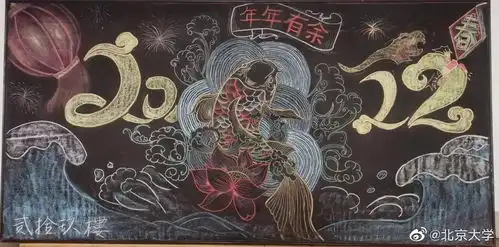 年年有余
春
2022
貳拾玖樓
@北京大学